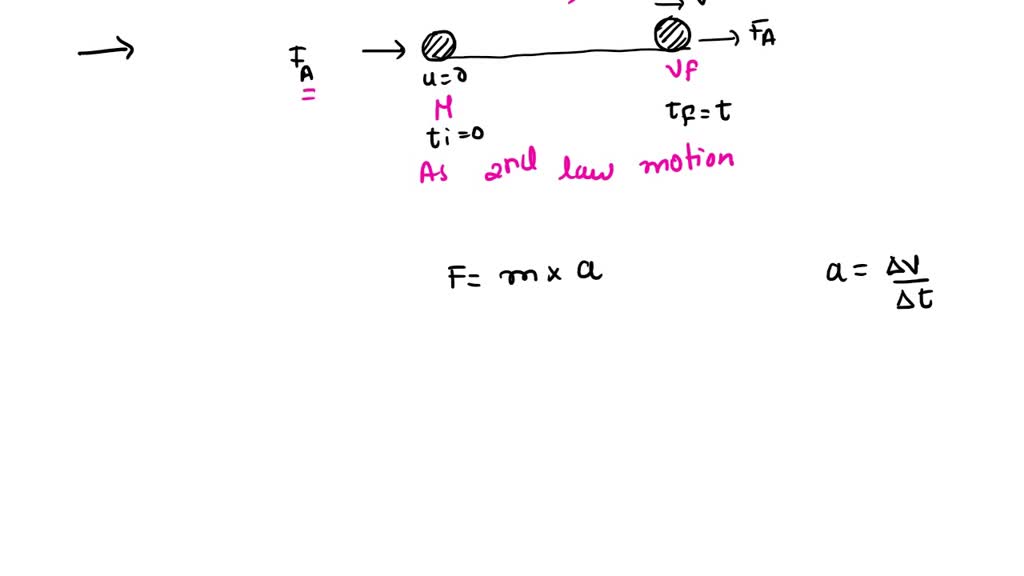 F_A
u=0
M
ti=0
v
F_A
vf
tf=t
As 2nd law motion
F= m× a
a= Δv/Δt